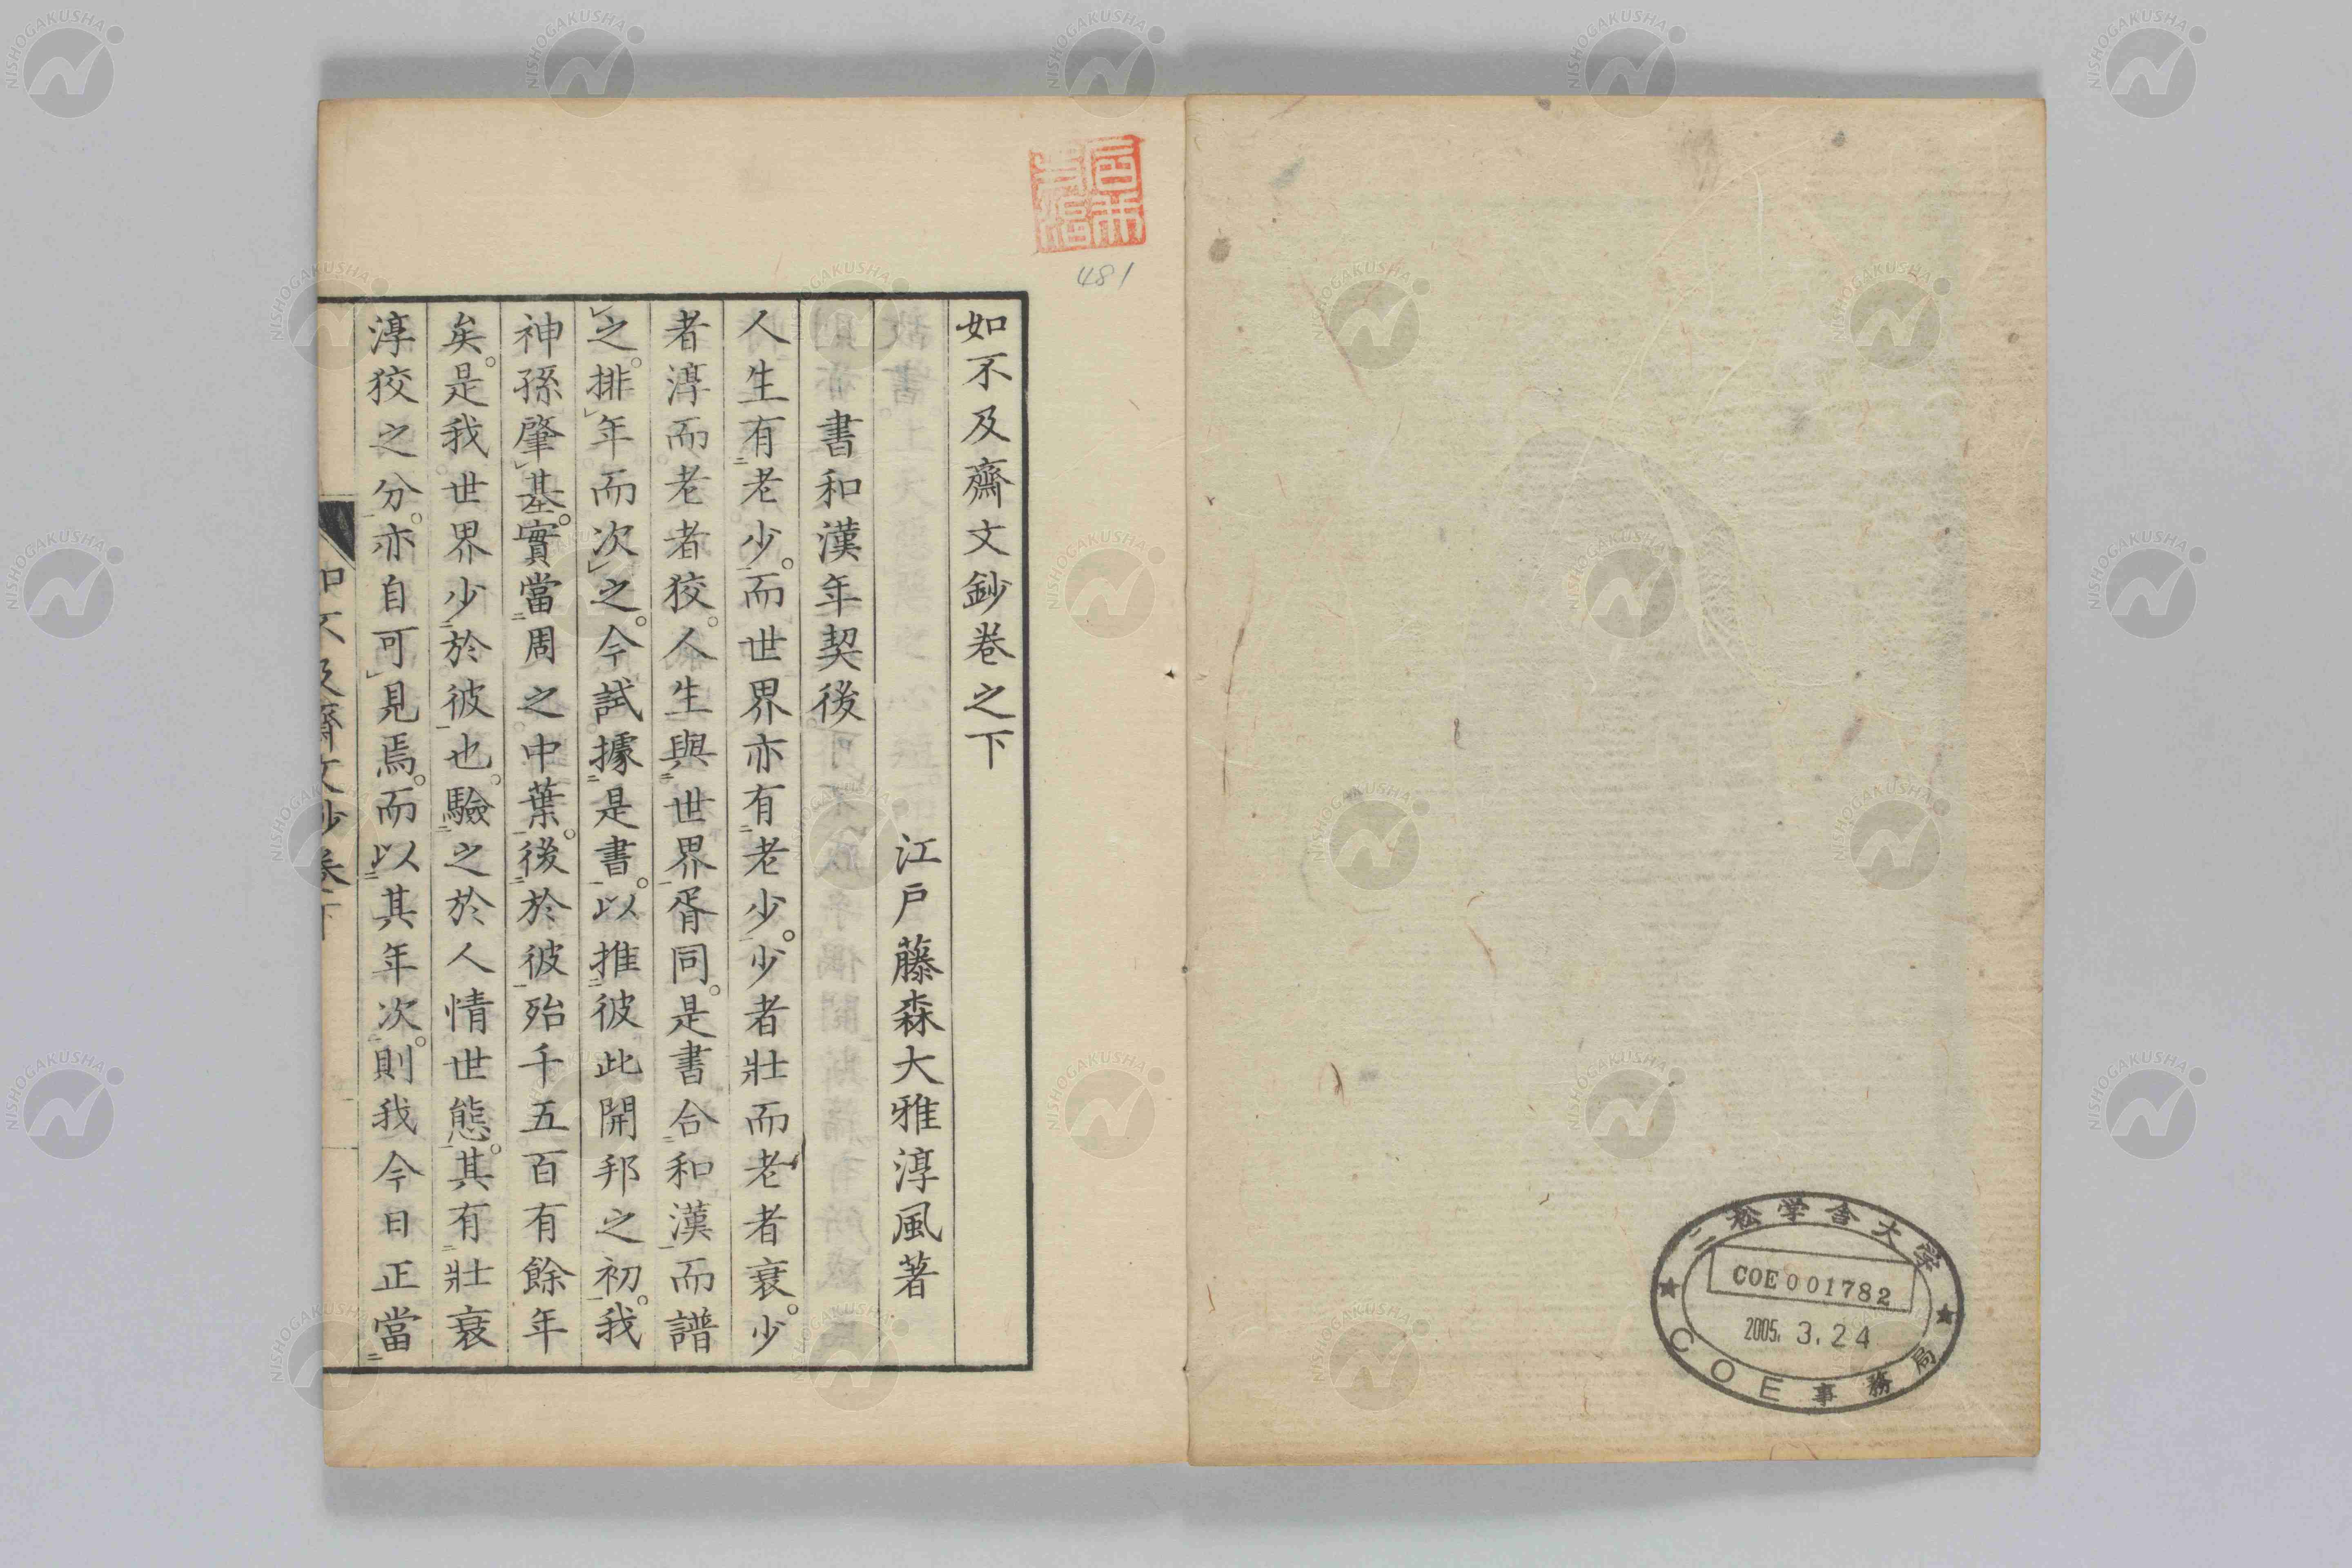 如不及齋文鈔卷之下
江戸藤森大雅淳風著
書和漢年契後
人生有老少。而世界亦有老少。少者壯而老者衰。少
者淳而老者狡。人生與世界胥同。是書合和漢而譜
之。排年而次之。今試據是書。以推彼此開邦之初。我
神孫肇基。實當周之中葉。後於彼殆千五百有餘年
矣。是我世界少於彼也。驗之於人情世態。其有壯衰
淳狡之分。亦自可見焉。而以其年次。則我今日正當
如不及齋文鈔卷下
481
二松学舎大学
COE001782
2005. 3. 24
COE事務局
NISHOGAKUSHA